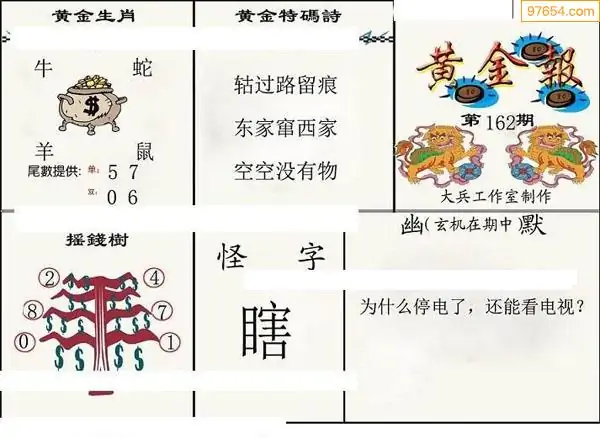 97654.com
黄金生肖
牛 蛇
$
羊 鼠
尾數提供: 单: 5 7
双: 0 6
黄金特碼詩
轱过路留痕
东家窜西家
空空没有物
黄金報
第162期
大兵工作室制作
摇錢樹
② ④
⑧ ⑦
⓪ ①
怪 字
瞎
幽(玄机在期中)默
为什么停电了，还能看电视?